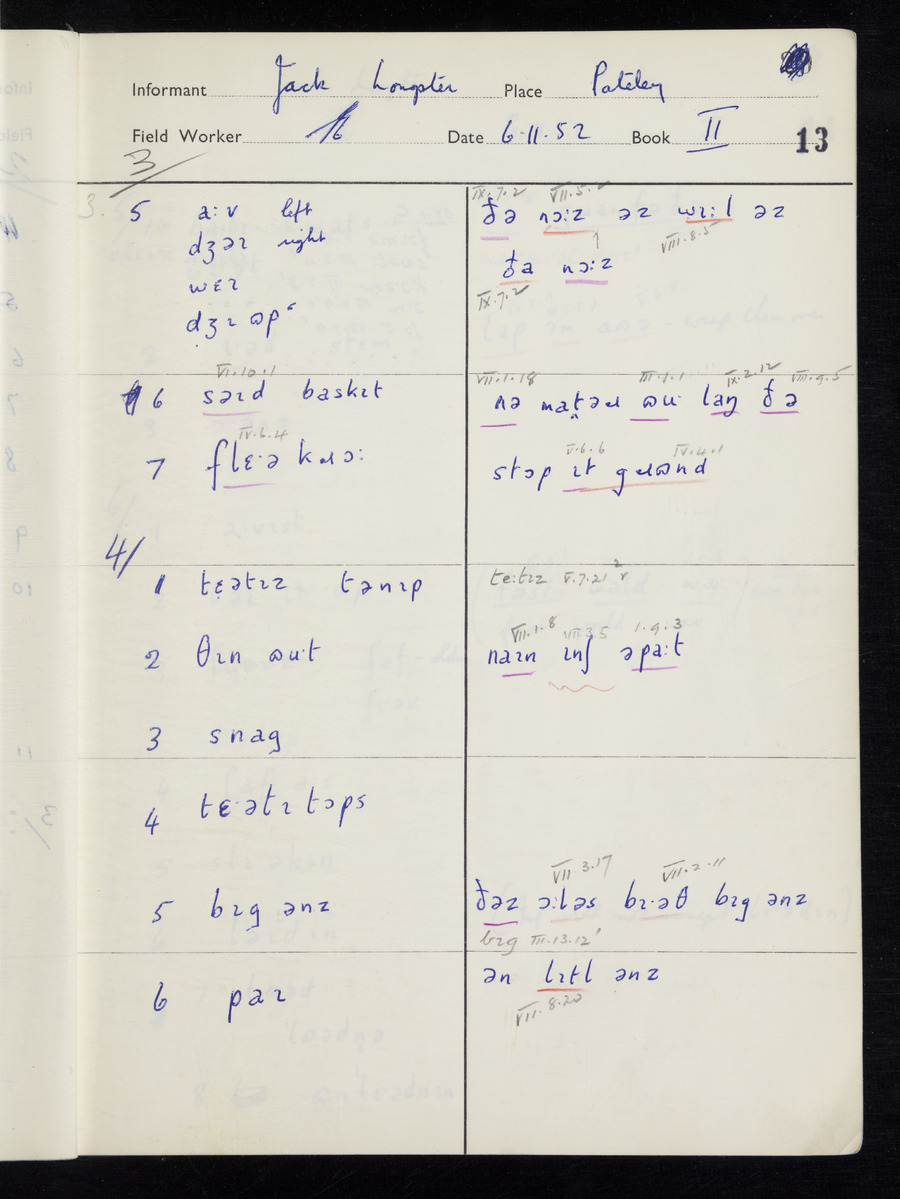 Informant Jack Longster Place Pateley
Field Worker Date 6·11·52 Book II 13
3/
3.
5 a:v left
dʒəɪ right
wɛɪ
dʒɪ ɷp
IX.7.2 VII.5.
ðə nɔ:z əz wɪ:l əz
VIII.8.5
ða nɔ:z
IX.7.2
VI.10.1
6 səɪd baskɪt
VII.1.18 III.1.1 IX.2.12 VIII.9.5
nə mat̪əɹ ɷu· laŋ ðə
IV.6.4
7 flɛ·ə kɹɔ:
V.6.6 IV.4.1
stɔp ɪt gɹɷnd
4/
1 tɛətɪz tənɪp
te:tɪz V.7.21
2 θɪn ɷu·t
VII.1.8 VII.3.5 1.9.3
naɪn ɪnʃ əpa:t
3 snag
4 tɛ·ətɪ tɔps
5 bɪg ənz
VII.3.17 VII.2.11
ðəz ɔ:ləs bɪ·əθ bɪg ənz
bɪg III.13.12
6 paɪ
ən lɪtl ənz
VII.8.20